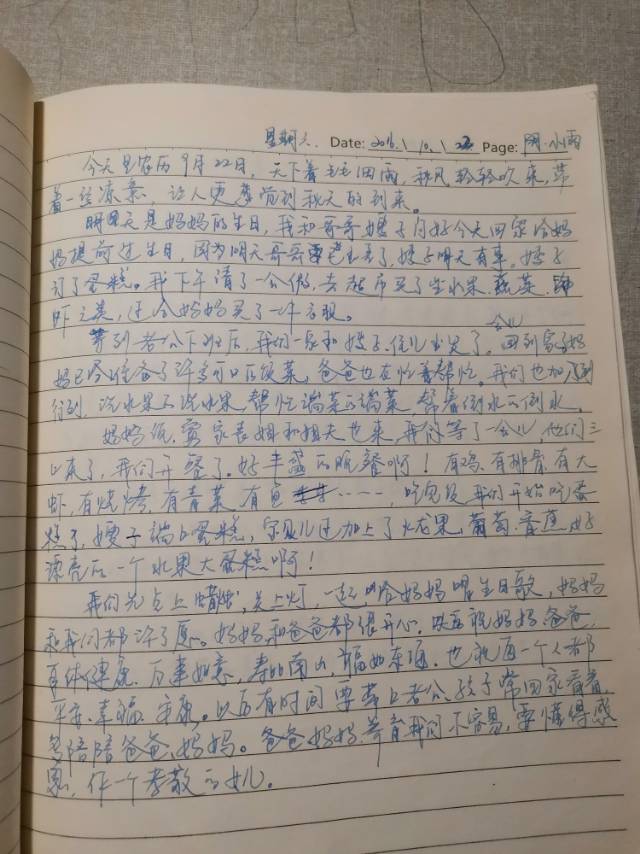 星期六 Date: 2016.\ 10. \ 22 Page: 阴.小雨
今天是农历9月22日，天下着毛毛细雨，秋风轻轻吹来，带
着一丝凉意，让人更应当到秋天的到来。
明天是妈妈的生日，我和哥哥嫂子问好今天回家给妈
妈提前过生日，因为明天哥哥要走了，嫂子明天有事。嫂子
订了蛋糕。我下午请了一会假，去超市买了些水果.蔬菜.
虾之类，还给妈妈买了一件衣服。
等到老公下班后，我们一家和嫂子.侄儿出发了。会儿回到家了妈
妈已经准备了许多可口的饭菜，爸爸也在忙着帮忙。我们也加入到
行列，洗水果的洗水果，帮忙端菜的端菜，帮着倒水的倒水。
妈妈说，家表姐和姐夫也来，我们等了一会儿，他们三
口来了，我们开餐了。好丰盛的晚餐啊！有鸡.有排骨.有大
虾，有烧烤.有青菜.有鱼……，吃完后我们开始吃蛋
糕了，嫂子端上蛋糕，宝贝儿还加上了火龙果.葡萄.香蕉，好
漂亮的一个水果大蛋糕啊！
我们先点上蜡烛，关上灯，一起给妈妈唱生日歌，妈妈
和我们都许了愿。妈妈和爸爸都很开心。以后祝妈妈爸爸
身体健康.万事如意，寿比南山，福如东海.也祝每一个人都
平安.幸福.安康。以后有时间要带上老公.孩子常回家看看，
多陪陪爸爸、妈妈。爸爸妈妈.养育我们不容易，要懂得感
恩，作一个孝敬的女儿。